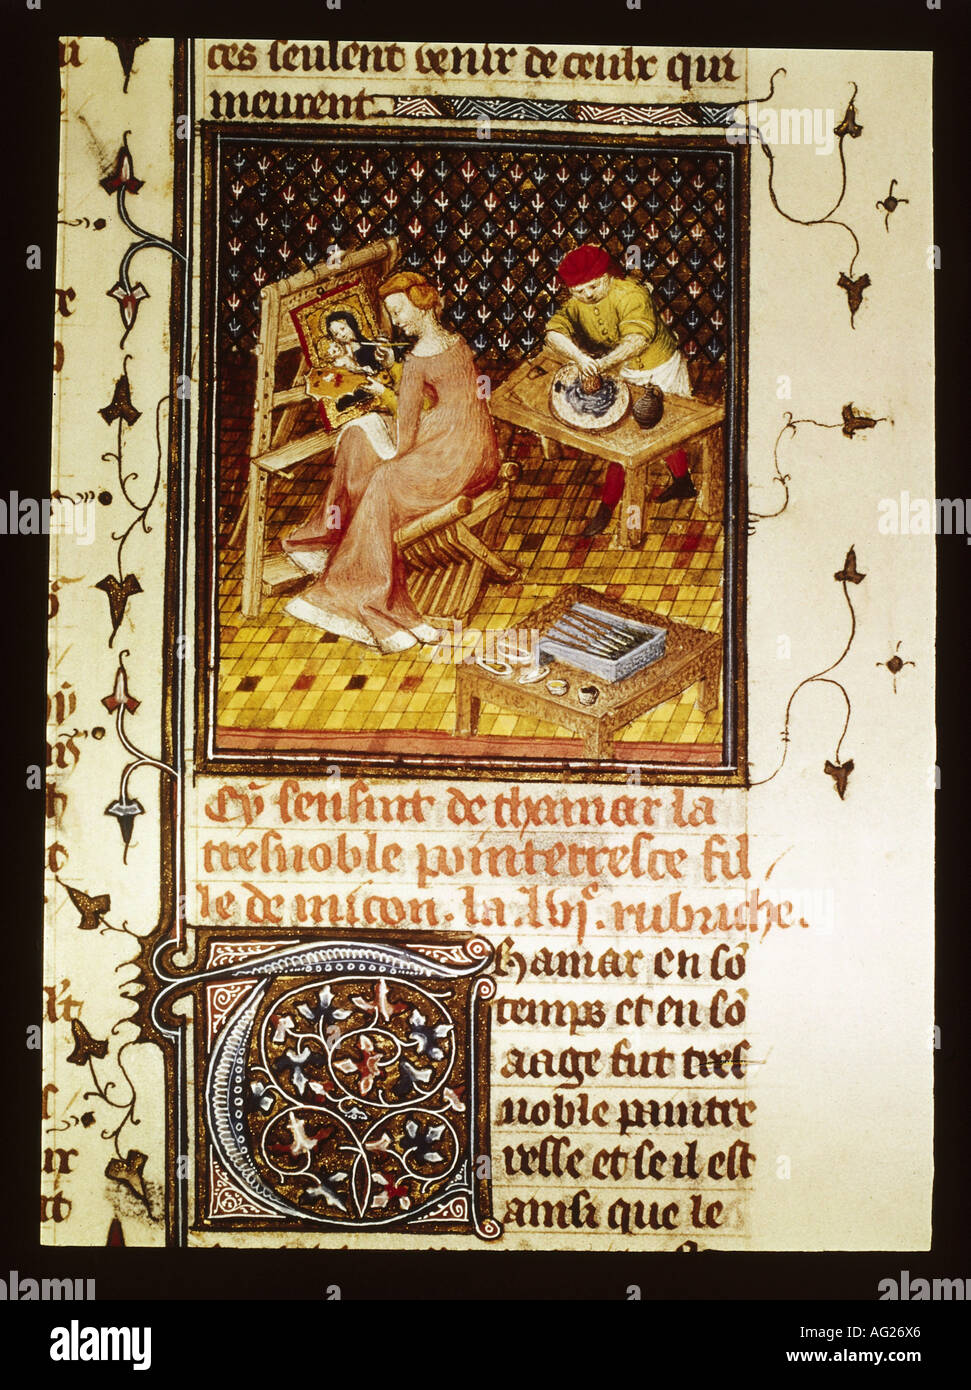 ces seulent venir de ceulx qui
meurent
Cy sensuit de thamar la
tresnoble pointerresce fil /
le de micon. la lvjᵉ. rubriche.
Thamar en sō
temps et en sō
aage fut tres
noble paintre
resse et se il est
ainsi que le
a
alamy
Image ID: AG26X6
www.alamy.com